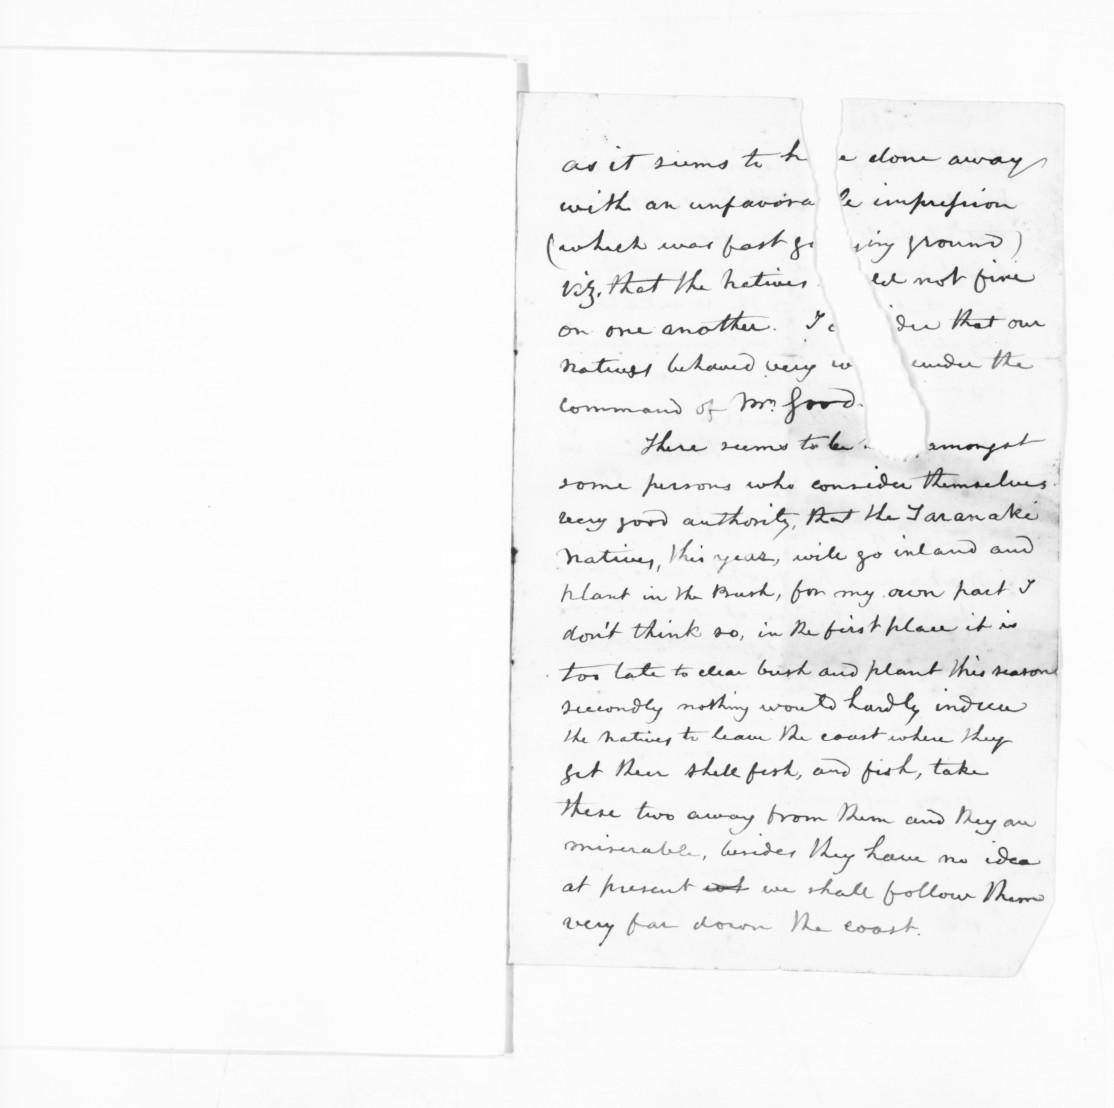 as it seems to h e done away
with an unfavora le impression
(which was fast g ing ground)
viz. that the Natives ld not fire
on one another. I c der that our
Natives behaved very w under the
command of Mr. Good.
There seems to be amongst
some persons who consider themselves
very good authority, that the Taranaki
Natives, this year, will go inland and
plant in the Bush, for my own part I
don't think so, in the first place it is
too late to clear bush and plant this season
secondly nothing would hardly induce
the Natives to leave the coast where they
get their shell fish, and fish, take
these two away from them and they are
miserable, besides they have no idea
at present we shall follow them
very far down the coast.